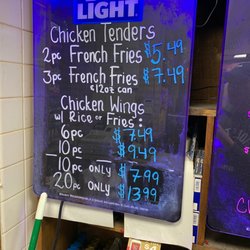 LIGHT
Chicken Tenders
2pc French Fries $5.49
3pc French Fries $7.49
&12oz can
Chicken Wings
w/ Rice or Fries:
6pc $7.49
10pc $9.49
10pc ONLY $7.99
20pc ONLY $13.99